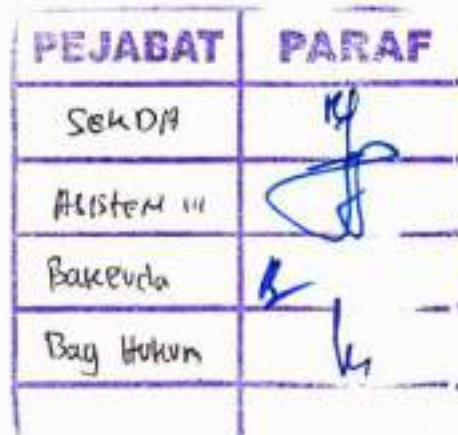 PEJABAT PARAF
SEKDA
Asisten III
Bakeuda
Bag Hukum